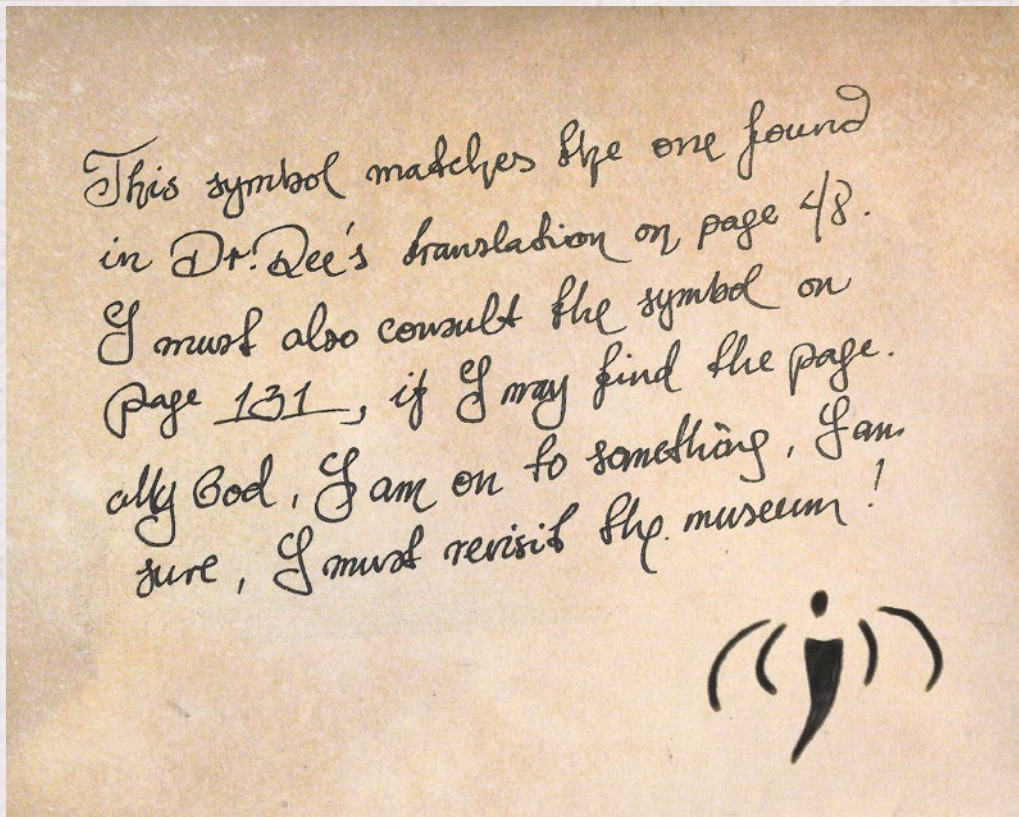 This symbol matches the one found
in Dr. Dee's translation on page 48.
I must also consult the symbol on
page 131, if I may find the page.
My God, I am on to something, I am
sure, I must revisit the museum!